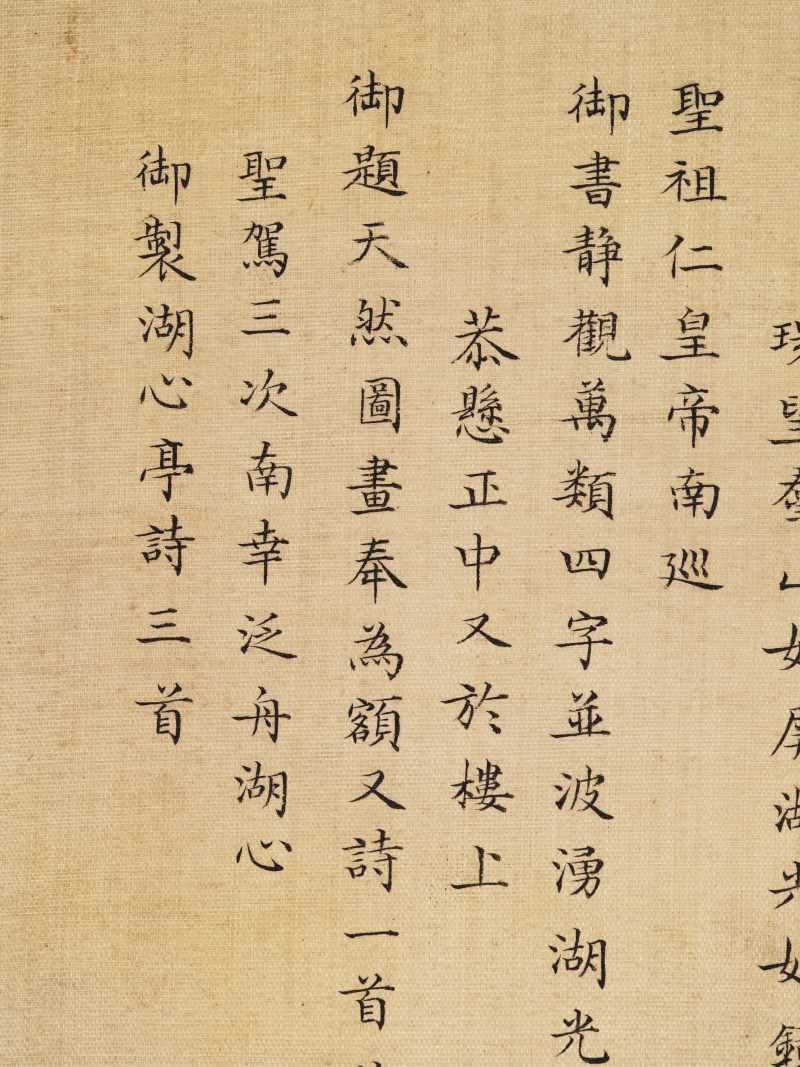 望羣山如屏湖光如鏡
聖祖仁皇帝南廵
御書静觀萬類四字並波湧湖光
恭懸正中又於樓上
御題天然圖畫奉為額又詩一首
聖駕三次南幸泛舟湖心
御製湖心亭詩三首